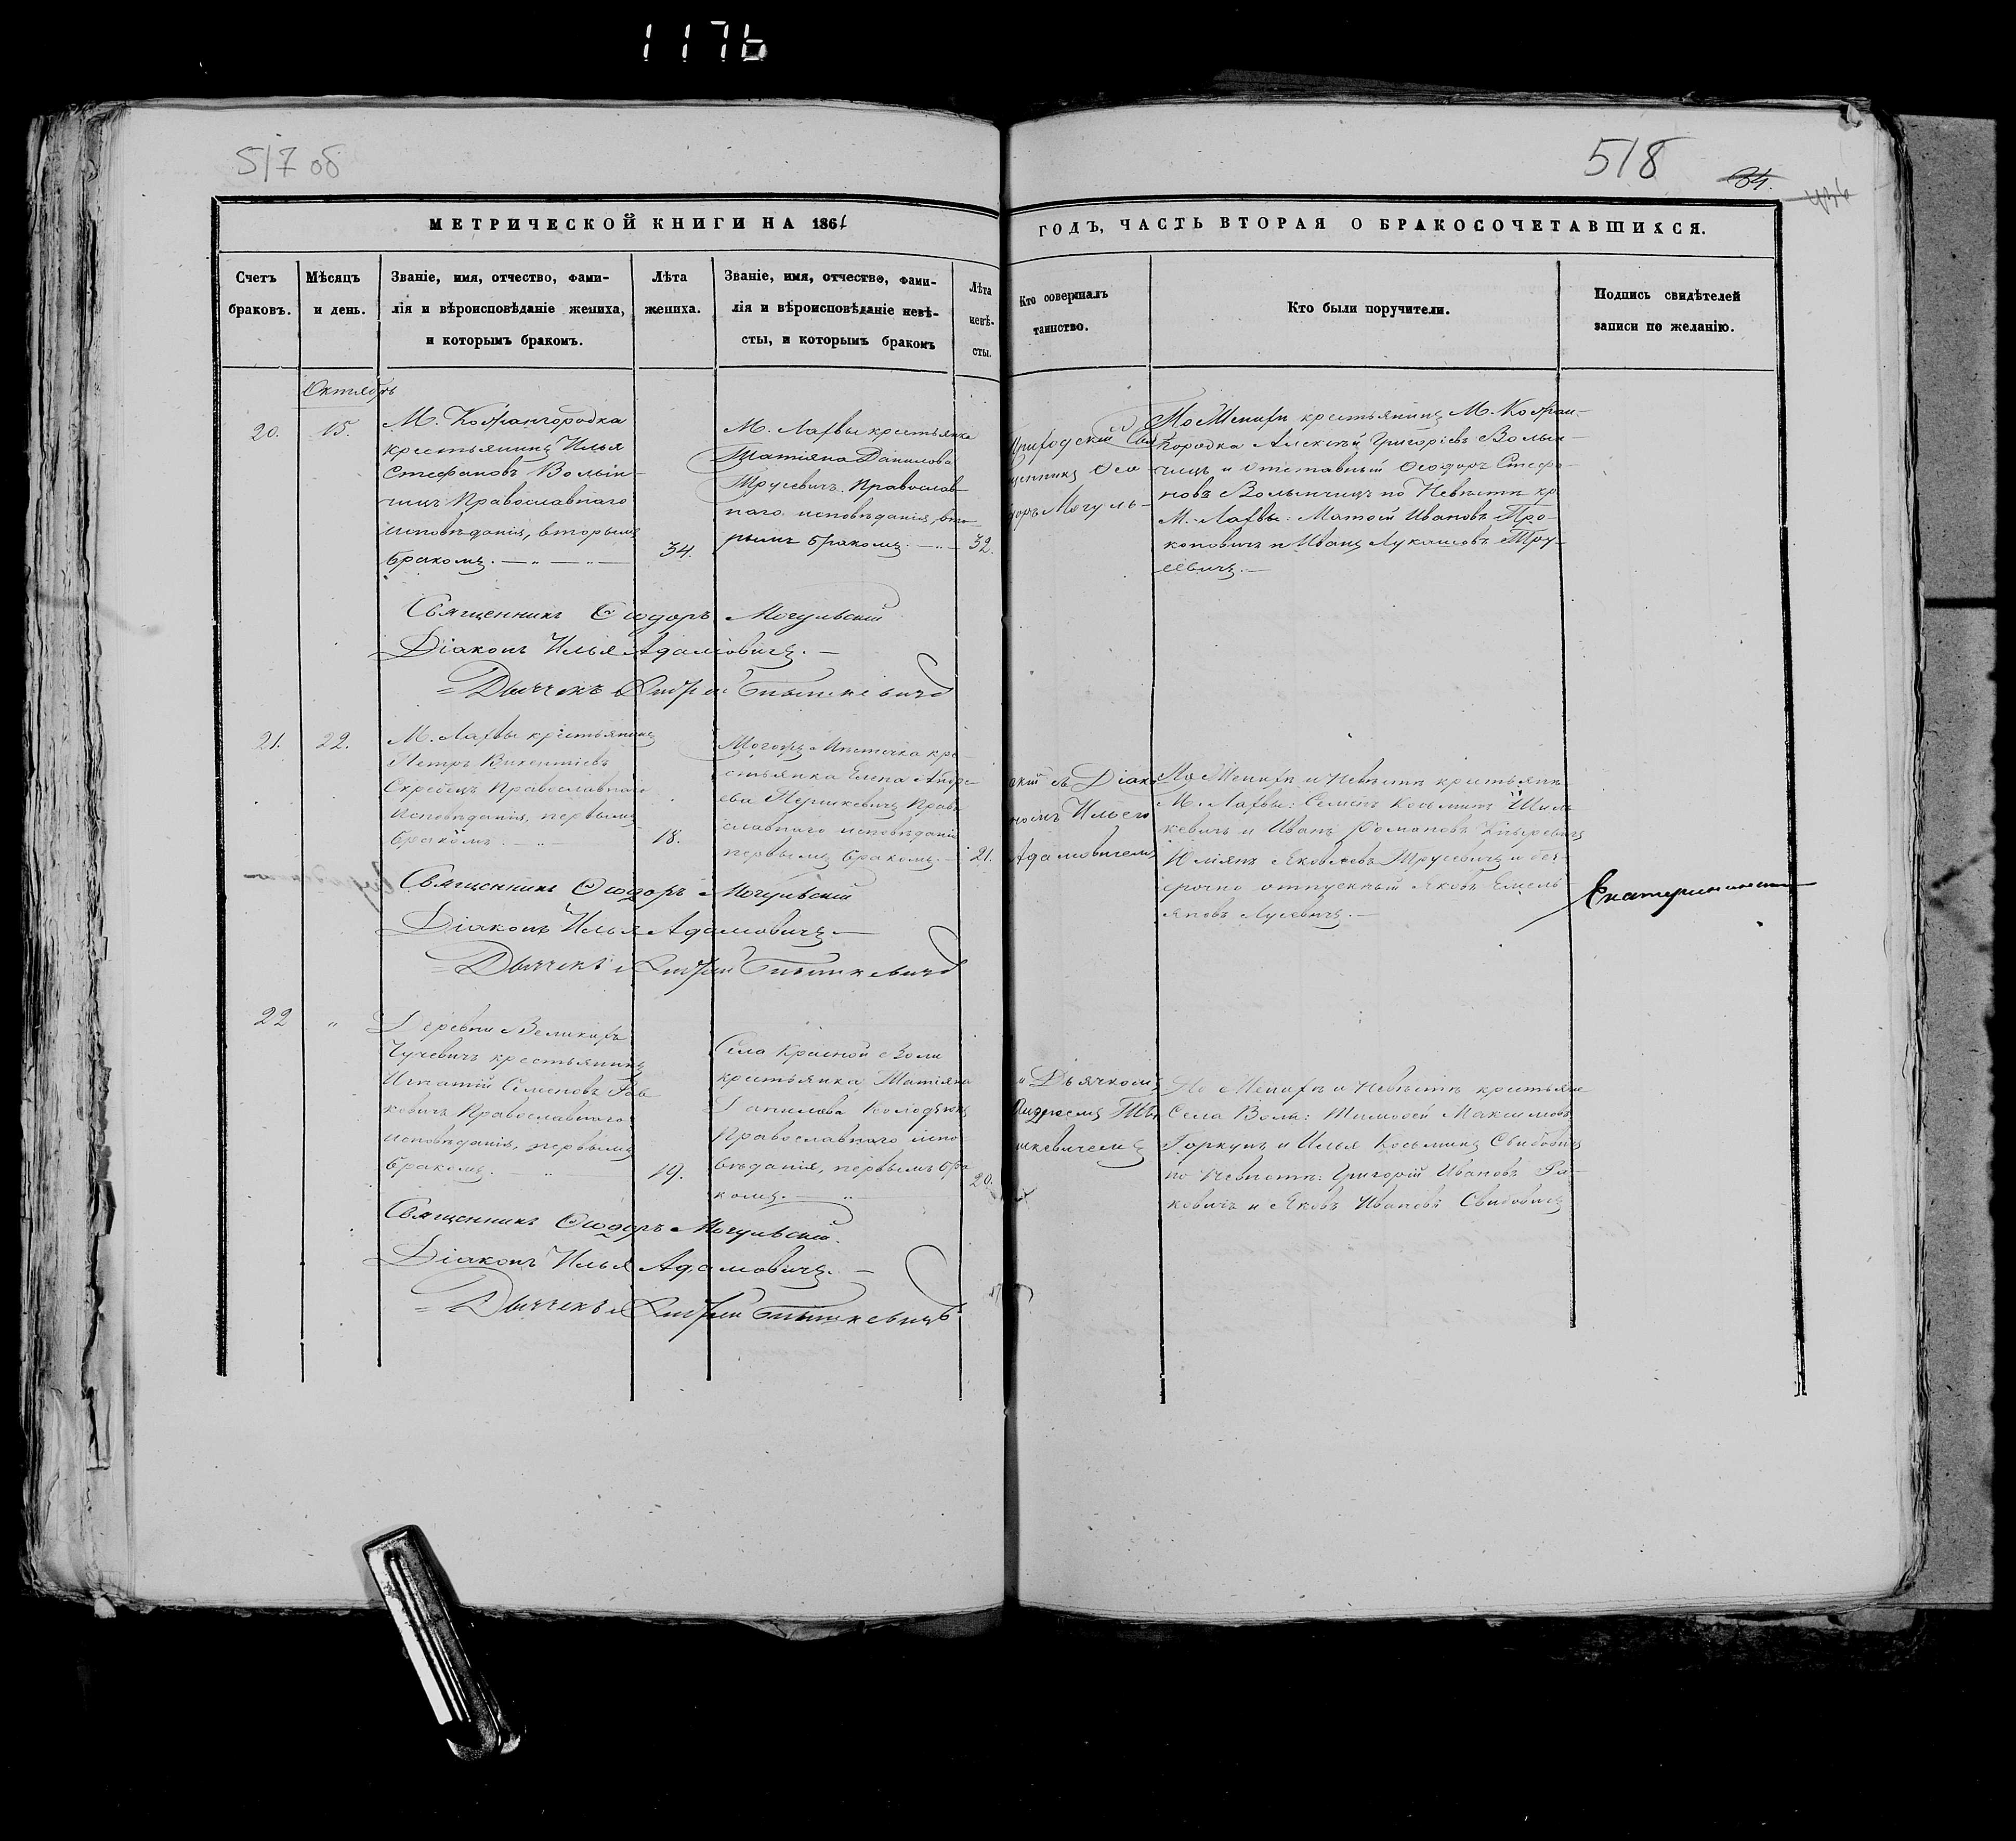 1176
517 об
518
84.
МЕТРИЧЕСКОЙ КНИГИ НА 1861
ГОДЪ, ЧАСТЬ ВТОРАЯ О БРАКОСОЧЕТАВШИХСЯ.
Счетъ
браковъ.
Мѣсяцъ
и день.
Званіе, имя, отчество, фами-
лія и вѣроисповѣданіе жениха,
и которымъ бракомъ.
Лѣта
жениха.
Званіе, имя, отчество, фами-
лія и вѣроисповѣданіе невѣ-
сты, и которымъ бракомъ
Лѣта
невѣ-
сты.
Кто совершалъ
таинство.
Кто были поручители.
Подпись свидѣтелей
записи по желанію.
Октябрь
20.
15.
М. Кожангородка
крестьянинъ Илья
Стефановъ Волын-
чицъ Православнаго
исповѣданія, вторымъ
бракомъ.
34.
М. Лахвы крестьянка
Татіяна Данилова
Трусевичъ Православ-
наго исповѣданія, вто-
рымъ бракомъ.
32.
Приходскій Свя-
щенникъ Ѳео-
доръ Могуль-
По Женихѣ крестьянинъ М. Кожан-
городка Алексѣй Григоріевъ Волын-
чицъ и отставный Ѳеодоръ Стефа-
новъ Волынчицъ по Невѣстѣ кр.
М. Лахвы: Матѳей Ивановъ Про-
коповичъ и Иванъ Лукашовъ Тру-
севичъ.
Священникъ Ѳеодоръ Могульскій
Діаконъ Илья Адамовичъ.
Дьячекъ Андрей Тышкевичъ
21.
22.
М. Лахвы крестьянинъ
Петръ Викентіевъ
Скребецъ Православнаго
исповѣданія, первымъ
бракомъ
18.
Тогожъ Мѣстечка кре
стьянка Елена Андре
ева Православ
славнаго исповѣданія
первымъ бракомъ.
21.
скій съ Діако
номъ Ильею
Адамовичемъ
По Женихѣ и Невѣстѣ крестьяне
М. Лахвы: Семенъ Косьминъ
кевичъ и Иванъ Романовъ
Юліянъ Яковлевъ Трусевичъ и без
срочно отпускный Яковъ Емель
яновъ Лусевичъ.
Священникъ Ѳеодоръ Могульскій
Діаконъ Илья Адамовичъ
Дьячекъ Андрей Тышкевичъ
22
"
Деревни Великихъ
Чучевичъ крестьянинъ
Игнатій Семеновъ Ра
ковичъ Православнаго
исповѣданія, первымъ
бракомъ.
19.
Села Красной Воли
крестьянка Татіяна
Данилова Колодзюкъ
Православнаго испо
вѣданія, первымъ бра
комъ.
20.
и Дьячкомъ
Андреемъ Ты
шкевичемъ
По Женихѣ и Невѣстѣ крестьяне
Села Воли: Тимоѳей Максимовъ
Горкунъ и Илья Косьминъ Свибовичъ
по Невѣстѣ: Григорій Ивановъ Ра-
ковичъ и Яковъ Ивановъ Свибовичъ
Священникъ Ѳеодоръ Могульскій.
Діаконъ Илья Адамовичъ.
Дьячекъ Андрей Тышкевичъ